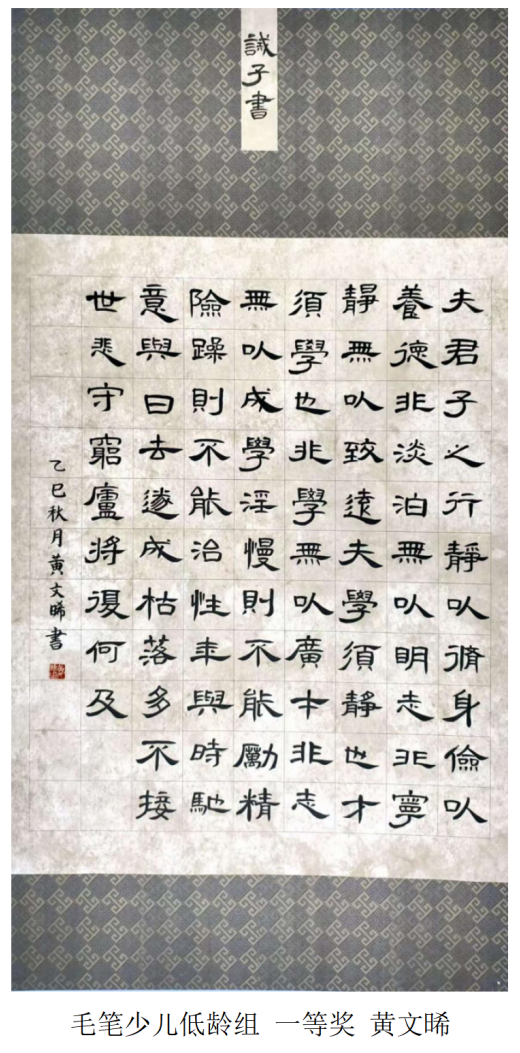 誡子書
夫君子之行靜以脩身儉以
養德非淡泊無以明志非寧
靜無以致遠夫學須靜也才
須學也非學無以廣才非志
無以成學淫慢則不能勵精
險躁則不能治性年與時馳
意與日去遂成枯落多不接
世悲守窮廬將復何及
乙巳秋月黃文晞書
毛笔少儿低龄组 一等奖 黄文晞